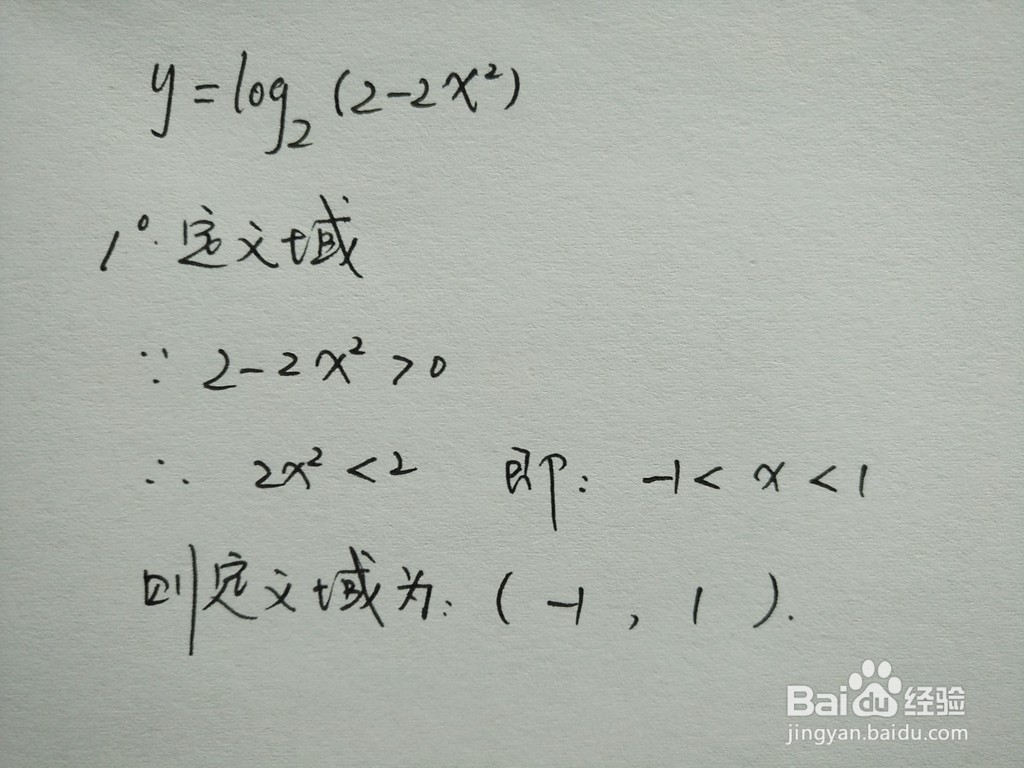 y=log₂(2-2x²)
1°.定义域
∵ 2-2x²>0
∴ 2x²<2 即: -1<x<1
则定义域为:(-1,1).
Baidu经验
jingyan.baidu.com